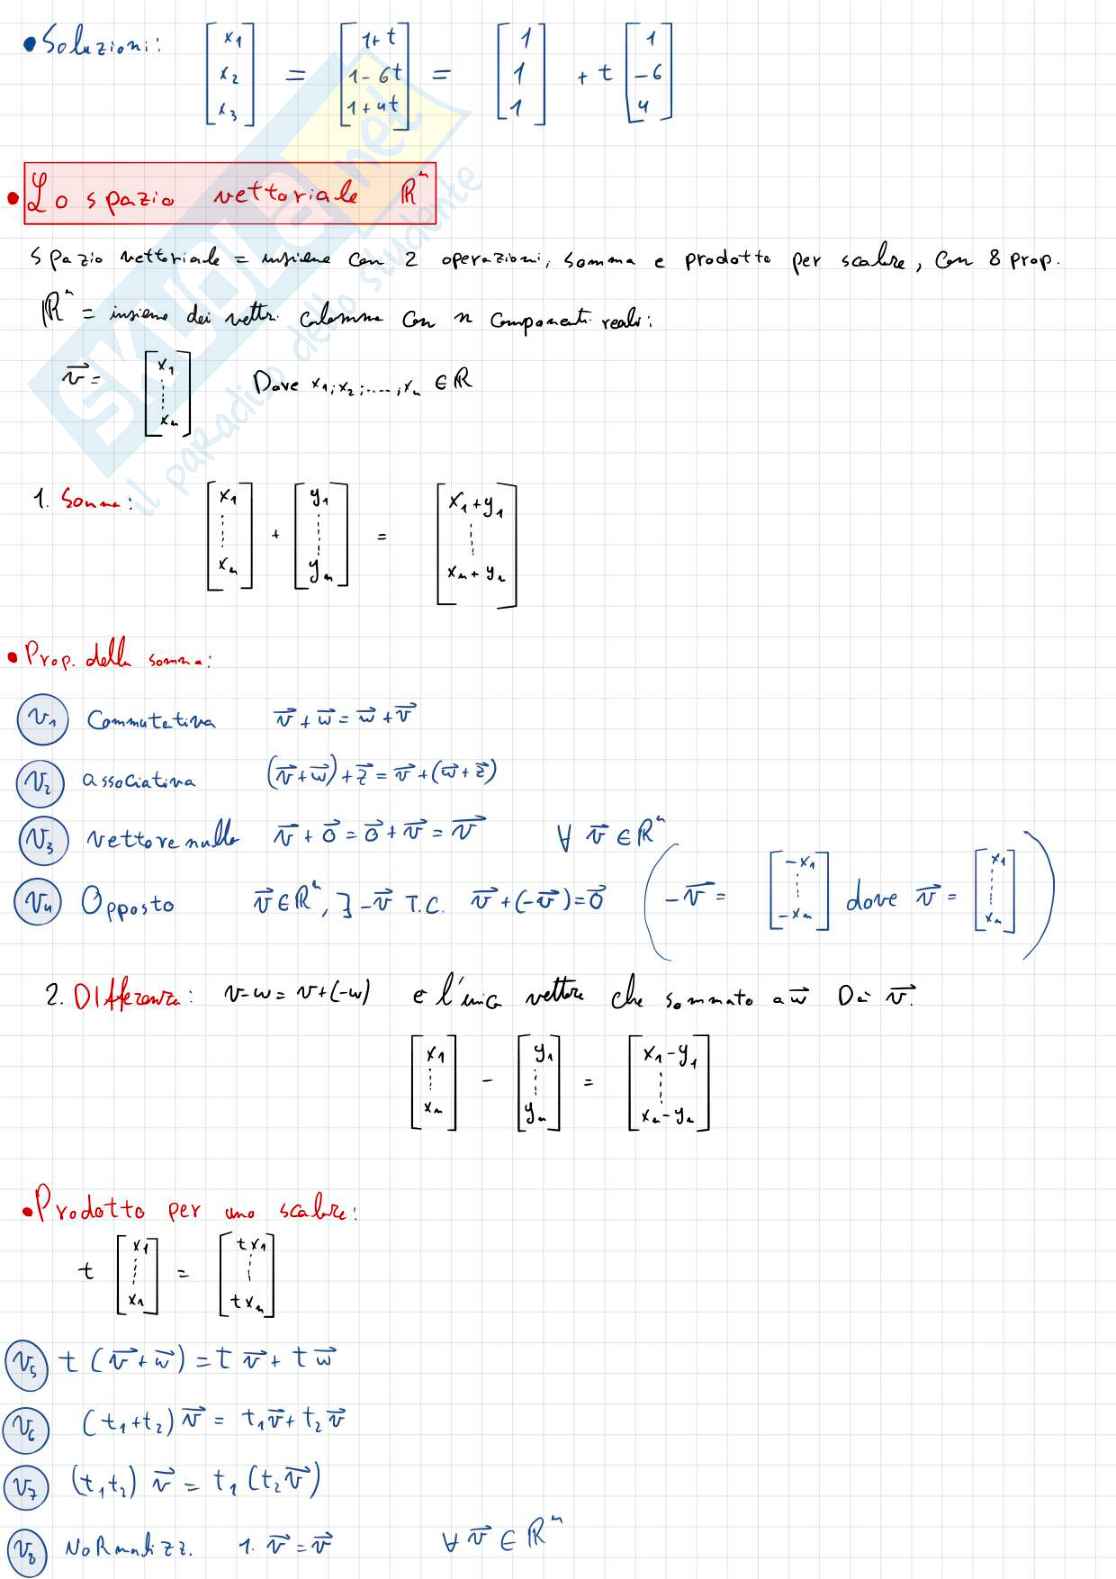 • Soluzioni: [x₁ x₂ x₃] = [1+t 1-6t 1+4t] = [1 1 1] + t [1 -6 4]
• Lo spazio vettoriale ℝⁿ
Spazio vettoriale = insieme con 2 operazioni, somma e prodotto per scalare, con 8 prop.
ℝⁿ = insieme dei vettori colonna con n componenti reali:
v⃗ = [x₁ ⋮ xₙ] Dove x₁; x₂; ....; xₙ ∈ ℝ
1. Somma: [x₁ ⋮ xₙ] + [y₁ ⋮ yₙ] = [x₁+y₁ ⋮ xₙ+yₙ]
• Prop. della somma:
V₁ Commutativa v⃗+w⃗ = w⃗+v⃗
V₂ associativa (v⃗+w⃗)+z⃗ = v⃗+(w⃗+z⃗)
V₃ vettore nullo v⃗+0⃗ = 0⃗+v⃗ = v⃗ ∀ v⃗ ∈ ℝⁿ
V₄ Opposto v⃗ ∈ ℝⁿ, ∃ -v⃗ T.C. v⃗+(-v⃗)=0⃗ (-v⃗ = [-x₁ ⋮ -xₙ] dove v⃗ = [x₁ ⋮ xₙ])
2. Differenza: v-w = v+(-w) e l'unico vettore che sommato a w⃗ Dà v⃗.
[x₁ ⋮ xₙ] - [y₁ ⋮ yₙ] = [x₁-y₁ ⋮ xₙ-yₙ]
• Prodotto per uno scalare:
t [x₁ ⋮ xₙ] = [tx₁ ⋮ txₙ]
V₅ t(v⃗+w⃗) = t v⃗ + t w⃗
V₆ (t₁+t₂) v⃗ = t₁v⃗ + t₂v⃗
V₇ (t₁t₂) v⃗ = t₁(t₂v⃗)
V₈ NoRmalizz. 1. v⃗ = v⃗ ∀ v⃗ ∈ ℝⁿ
SKUOLA.net
il paradiso dello studente